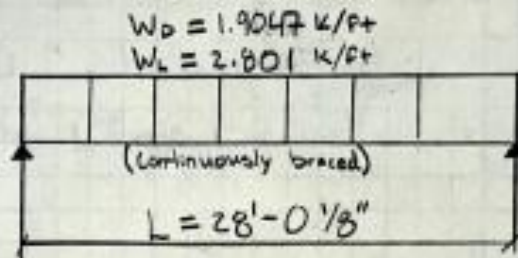 W_D = 1.9047 K/ft
W_L = 2.801 K/ft
(Continuously braced)
L = 28'-0 1/8"